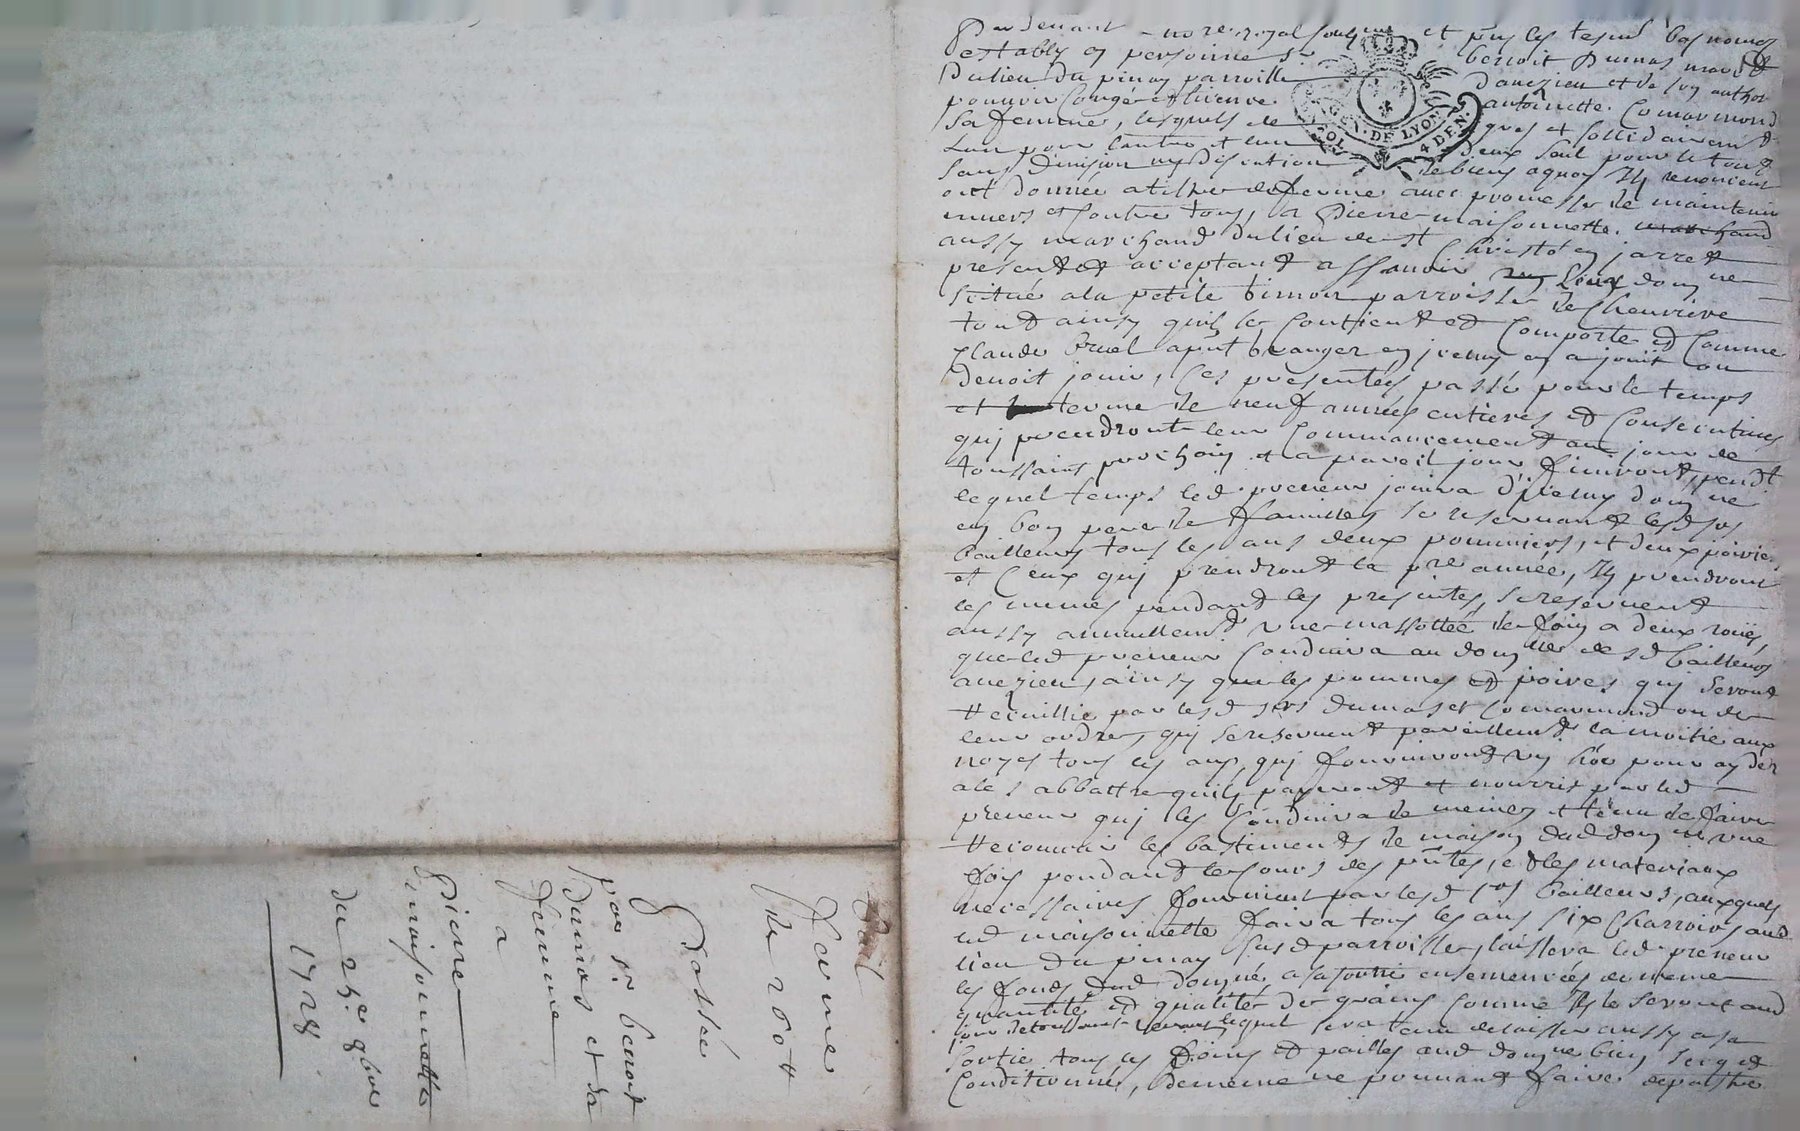 Pardevant no.re royal soubsigné et pnts les tesms bas només
establys en personnes Sr benoit Dumas march.d
Du lieu du pinay parroisse d'aveizieu et de son authorité
pouvoir Congé et licence antoinette Comarmond
sa femme, lesquels de gres et sollidairem.t
L'un pour l'autre et l'un d'eux seul pour le tout
sans division ny discution de biens a quoy Ils renoncent
ont donnée a tiltre de ferme avec promesse de maintenir
envers et contre tous, a Pierre maisonnette marchand
aussy marchand du lieu de St Christo en jarret
present et acceptant assavoir Leur dom.ne
scitué a la petite parroisse de Chevrière
tout ainsy qu'il se Contient et Comporte et Comme
Claude granger en jouit ou
devoit jouir, Ces presentes passé pour le temps
et terme de neuf années entieres et Consecutives
quj prendront leur Commancement au jour de
toussaint prochain et a pareil jour finiront, pend.t
lequel temps led. preneur jouira d'Icelluy dom.ne
en bon pere de famille se reservant lesd. srs
bailleurs tous les ans deux pommiers, et deux poiriers
et Ceux quj prendront la p.re année, Ils prendront
les mêmes pendant les presentes, se reservent
aussy annuellem.t une de foin a deux roües,
que led. preneur Conduira au dom.ne desd. bailleurs
aveizieu, ainsy que les pommes et poires quj seront
recuillie par lesd. srs dumas et Comarmond ou de
leur ordre, quj se reservent pareillem.t la moitié aux
noyes tous les ans, quj fourniront un pour ayder
a les abbattre quils payeront et nourris par led.
preneur quj les Conduira de meme et tenu de faire
recouvrir les bastiments de maison dud. dom.ne une
fois pendant le cours des pntes, et les materiaux
necessaires fournient par lesd. srs bailleurs, auxquels
led. maisonnette faira tous les ans six Charrois aud.
lieu du pinay susd. parroisse, laissera led. preneur
les fonds dud. domgne, a sa sortie ensemencées de meme
quantité et qualité de grains Comme Ils le seront aud.
jour de toussaint venant lequel sera tenu de laisser aussy a sa
sortie tous les foins et pailles aud. domgne bien secq et
Conditionné, de meme ne pouvant faire depaistre
ferme
De 200 #
Passée
par sr. benoit
Dumas et sa
femme
a
Pierre
maisonnette
Du 25.e 9bre
1728